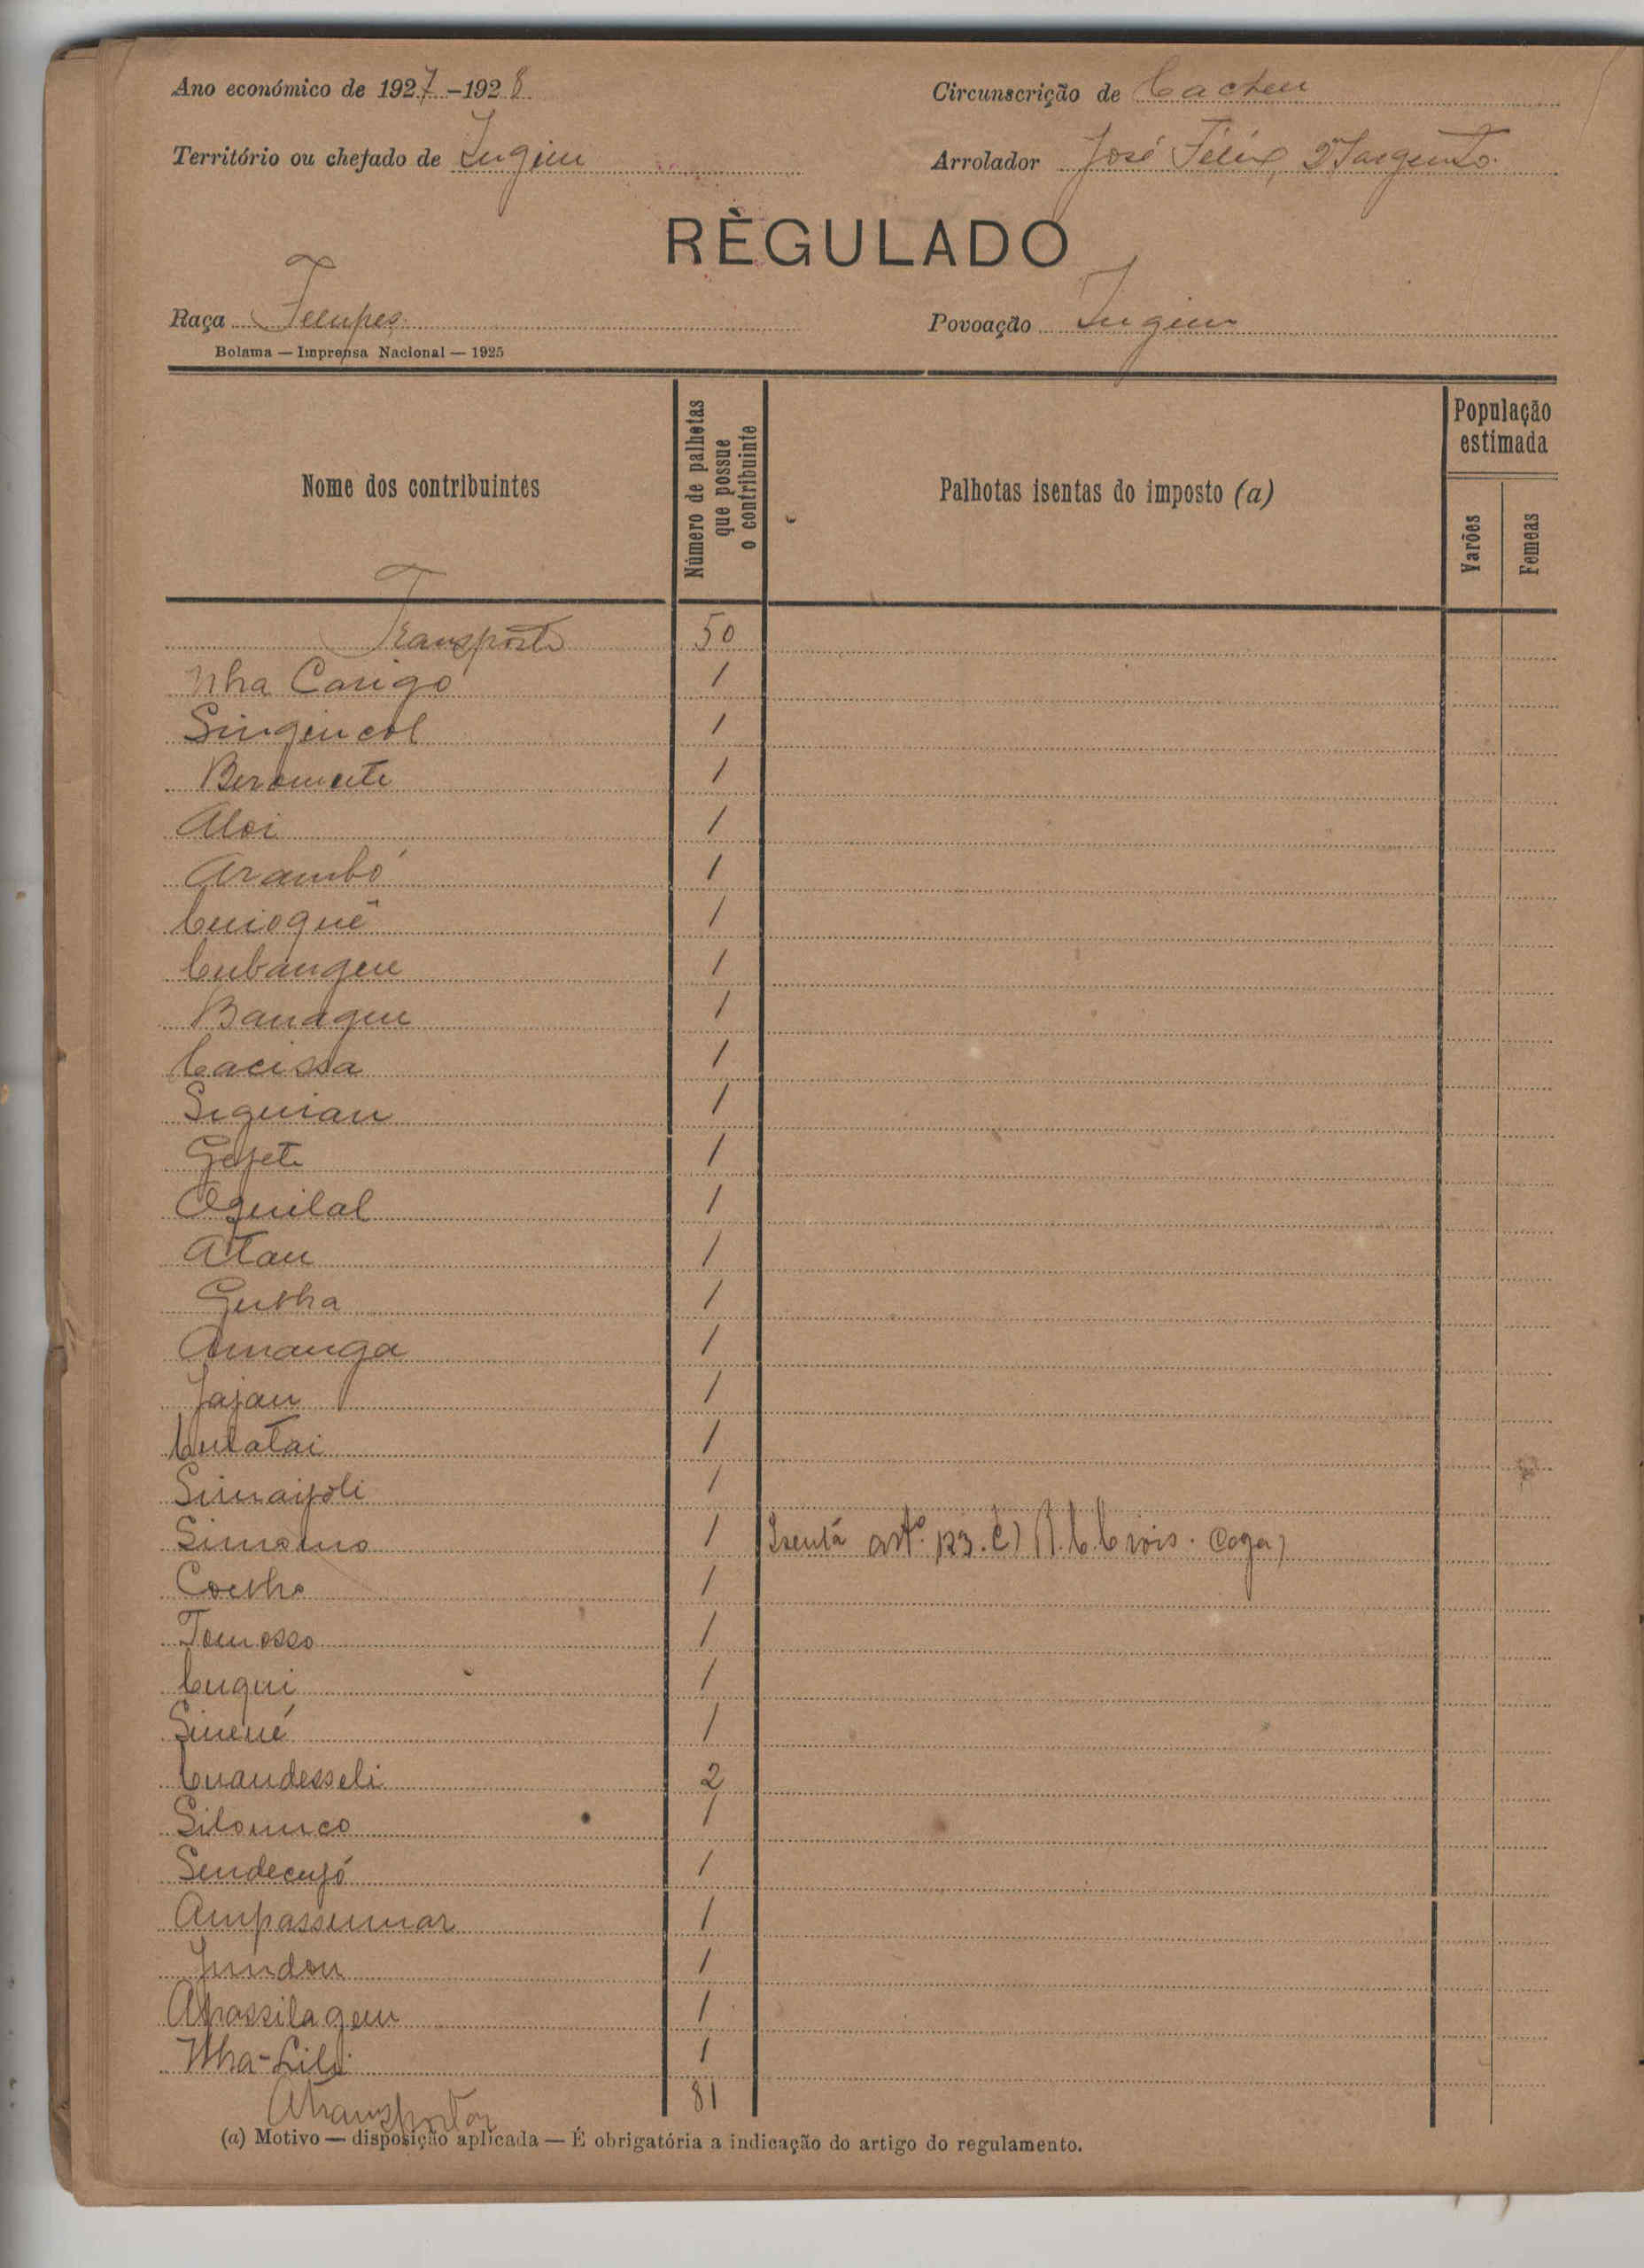 Ano económico de 1927-1928
Circunscrição de Cacheu
Território ou chefado de Jugim
Arrolador José Félix, 2º Sargento.
RÈGULADO
Raça Felupes
Povoação Jugim
Bolama — Imprensa Nacional — 1925
Nome dos contribuintes
Número de palhotas que possue o contribuinte
Palhotas isentas do imposto (a)
População estimada
Varões
Femeas
Transporte 50
Nha Carigó 1
Singencol 1
Beramente 1
Aloi 1
Arambó 1
Cuioguê 1
Cubangue 1
Banague 1
Cacissa 1
Siguian 1
Gefete 1
Oguilal 1
Atau 1
1
Amanga 1
Jajau 1
Culatai 1
1
1 Isenta artº. 123. C)
Coelho 1
1
Cugui 1
Sinené 1
Cuandesseli 2
Silounco 1
Sendecujó 1
Ampassumar 1
Jundou 1
Apassilagem 1
Nha-Lili 1
A transportar 81
(a) Motivo — disposição aplicada — É obrigatória a indicação do artigo do regulamento.